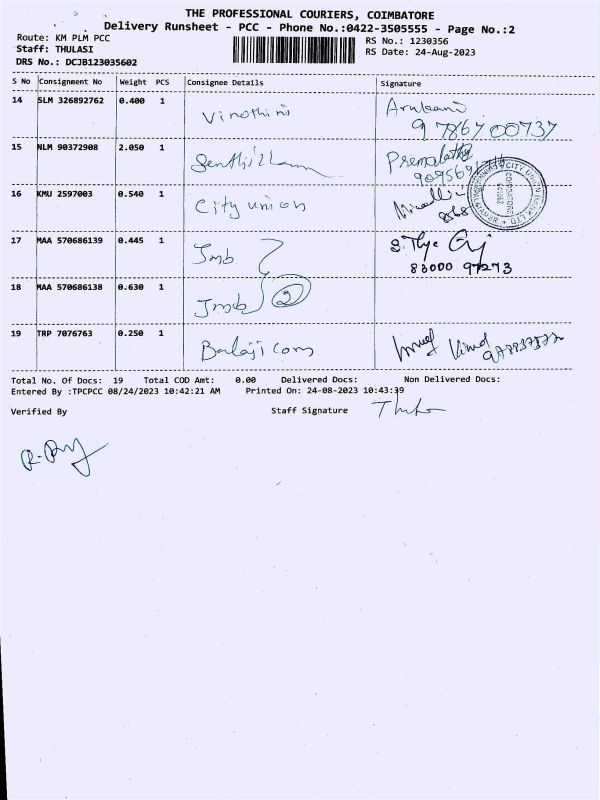 THE PROFESSIONAL COURIERS, COIMBATORE
Delivery Runsheet - PCC - Phone No.:0422-3505555 - Page No.:2
Route: KM PLM PCC
RS No.: 1230356
Staff: THULASI
RS Date: 24-Aug-2023
DRS No.: DCJB123035602
S No Consignment No Weight PCS Consignee Details Signature
14 SLM 326892762 0.400 1 Vinothini
97867 00737
15 NLM 90372908 2.050 1 Premalatha
16 KMU 2597003 0.540 1 City union
CITY UNION BANK LTD
17 MAA 570686139 0.445 1 Jmb
83000 97273
18 MAA 570686138 0.630 1 Jmb 2
19 TRP 7076763 0.250 1 Balaji com
Total No. Of Docs: 19 Total COD Amt: 0.00 Delivered Docs: Non Delivered Docs:
Entered By :TPCPCC 08/24/2023 10:42:21 AM Printed On: 24-08-2023 10:43:39
Verified By Staff Signature